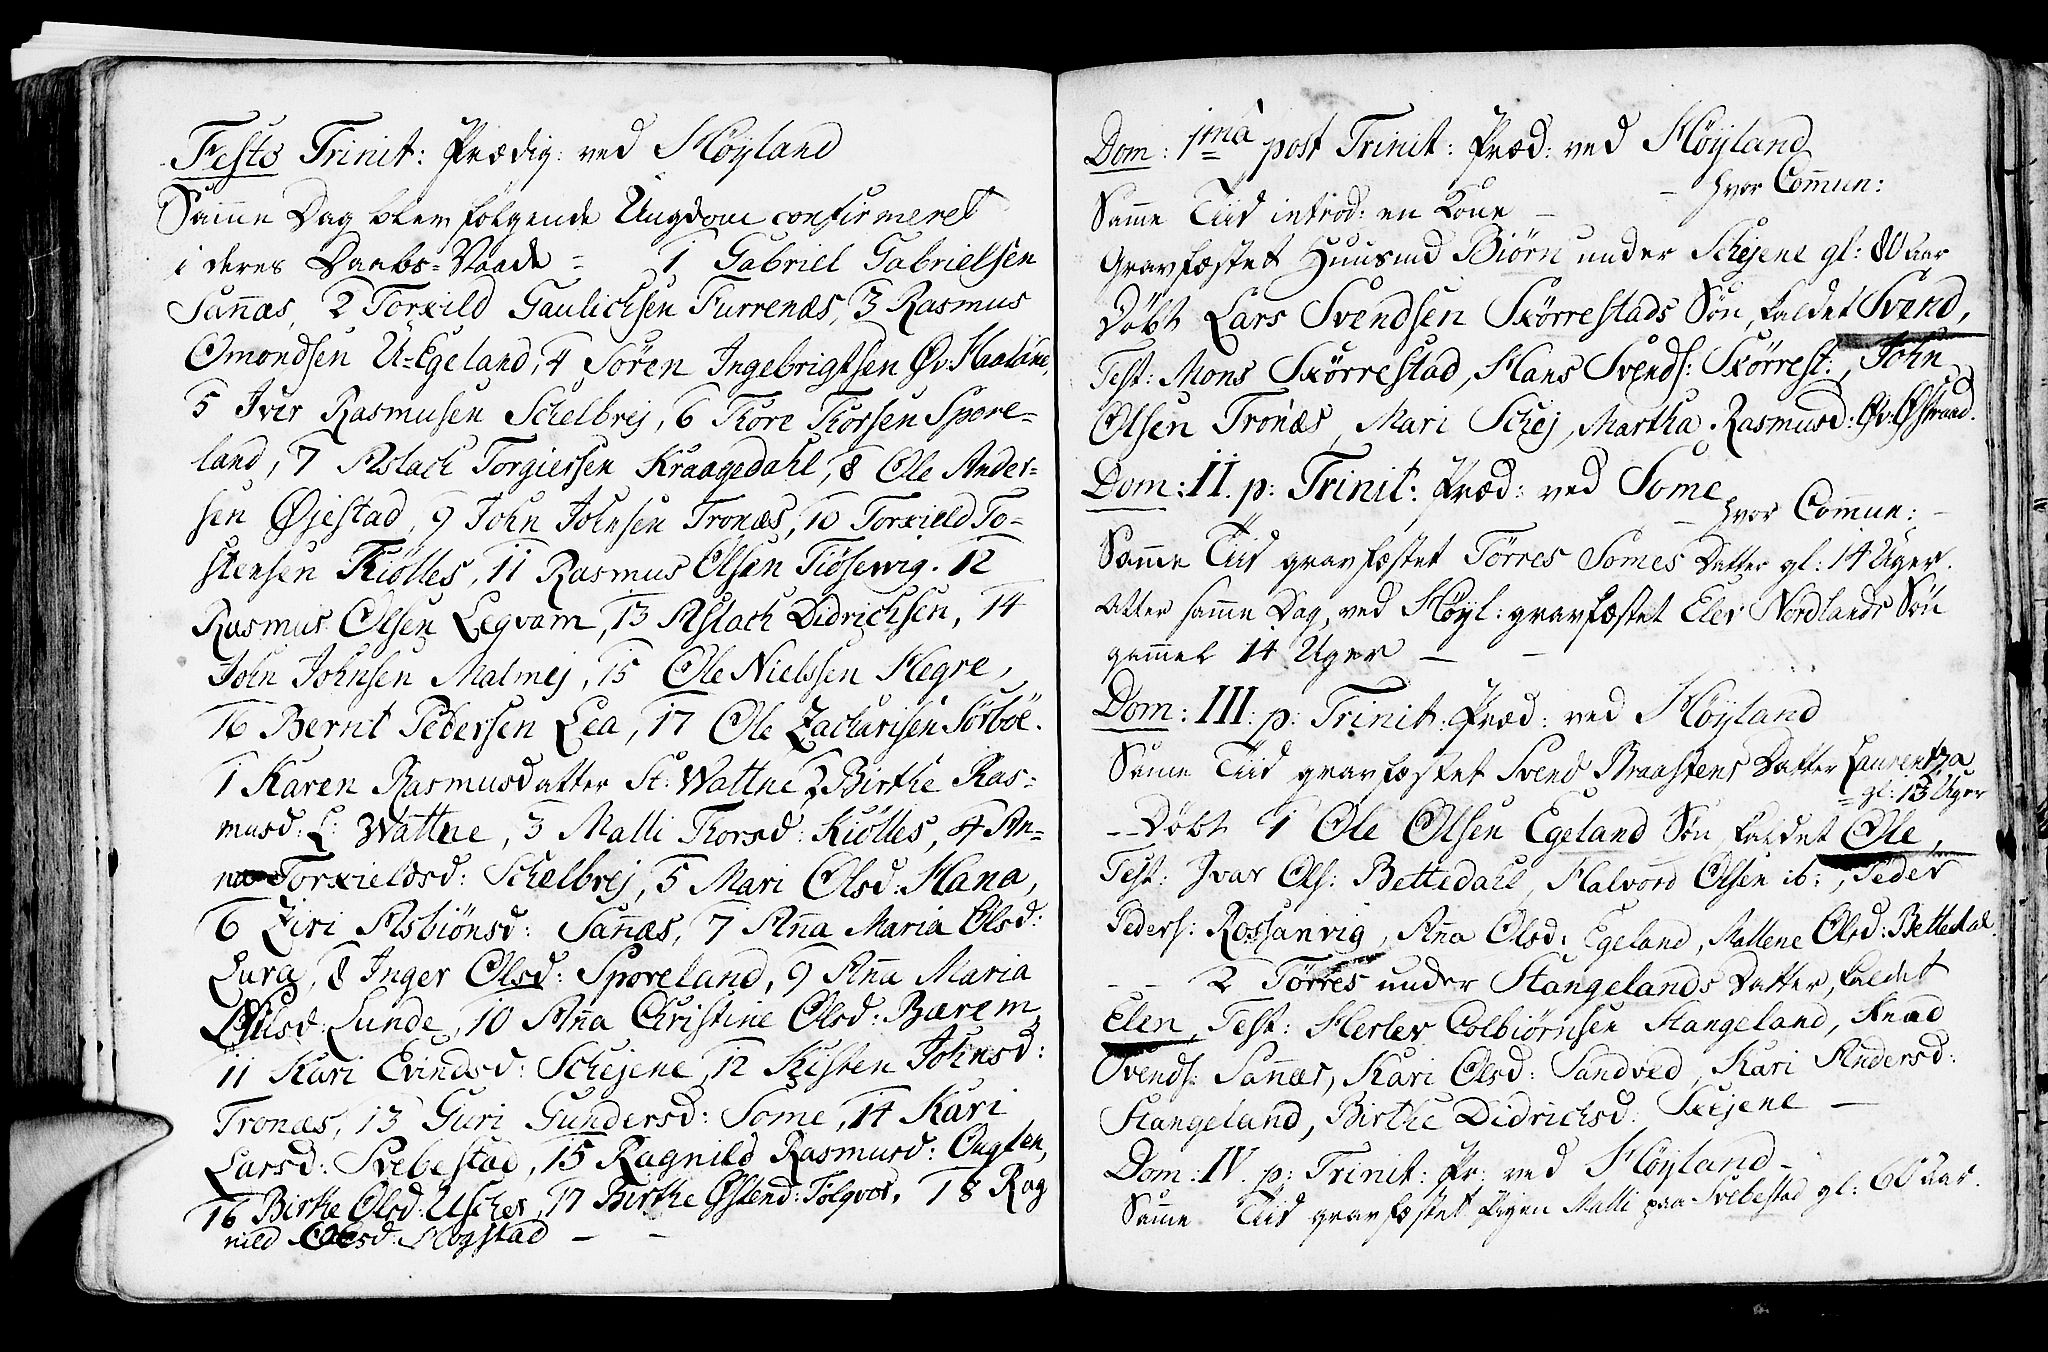 Festo Trinit: Prædig: ved Höyland
Samme Dag blev følgende Ungdom confirmeret
i deres Daabs=Naade = 1 Gabriel Gabrielsen
Sañæs, 2 Torkild Gaulichsen Furrenæs, 3 Rasmus
Omondsen U=Egeland, 4 Sören Ingebrigtsen Øv:
5 Iver Rasmusen Schelbrej, 6 Thore Thorsen Spore=
land, 7 Aslach Torgiersen Kraagedahl, 8 Ole Ander=
sen Øjestad, 9 John Johnsen Tronæs, 10 Torkield To=
stensen Kiölles, 11 Rasmus Olsen Tiösevig. 12
Rasmus Olsen Legvam, 13 Aslach Didrichsen, 14
John Johnsen Malmej, 15 Ole Nielssen Hegre,
16 Bernt Pedersen Lea, 17 Ole Zacharisen Sörböe.
1 Karen Rasmusdatter St: Wattne 2 Birthe Ras=
musd: L: Wattne, 3 Malli Thorsd: Kiölles, 4 An=
na Torkieldsd: Schelbrej, 5 Mari Olsd: Hana,
6 Ziri Asbiönsd: Sañæs, 7 Aña Maria Olsd:
Lura, 8 Inger Olsd: Sporeland, 9 Aña Maria
Olsd: Lunde, 10 Aña Christine Olsd: Bærem,
11 Kari Evindsd: Schejene, 12 Kisten Johnsd:
Tronæs, 13 Guri Gundersd: Some, 14 Kari
Larsd: Svebestad, 15 Ragnild Rasmusd: Ouglen,
16 Birthe Olsd: Uscher, 17 Birthe Østend: Folqvor, 18 Rag
nild Olsd: Hogstad
Dom: 1mâ post Trinit: Præd: ved Höyland
hvor Com̃un:
Sam̃e Tiid introd: en Kone —
Gravfæstet Huusmd Biörn under Schejene gl: 80 Aar
Döbt Lars Svendsen Skörrestads Sön, kaldet Svend,
Test: Mons Skörrestad, Hans Svends: Skörrest:, John
Olsen Tronæs, Mari Schej, Martha Rasmusd: Øv: Østraad.
Dom: II. p: Trinit: Præd: ved Some
hvor Com̃un: —
Sam̃e Tiid gravfæstet Törres Somes Datter gl: 14 Uger.
Atter sam̃e Dag, ved Höyl: gravfæstet Elev Nordlands Sön
gam̃el 14 Uger —
Dom: III: p: Trinit: Præd: ved Höyland
Sam̃e Tiid gravfæstet Svend Braastens Datter Laurentza
= gl: 13 Uger
— Döbt 1 Ole Olsen Egeland Sön, kaldet Ole,
Test: Ivar Ols: Bettedahl, Halvord Olsen ib:, Peder
Peders: Rossanvig, Aña Olsd: Egeland, Mallene Olsd: Bettedal.
— — 2 Törres under Stangelands Datter, kaldet
Elen, Test: Herlev Colbiörnsen Stangeland, Knud
Svends: Sañæs, Kari Olsd: Sandved, Kari Andersd:
Stangeland, Birthe Didrichsd: Skejene —
Dom: IV. p: Trinit: Pr: ved Höyland —
Sam̃e Tiid gravfæstet Pigen Malli paa Svebestad gl: 60 Aar.